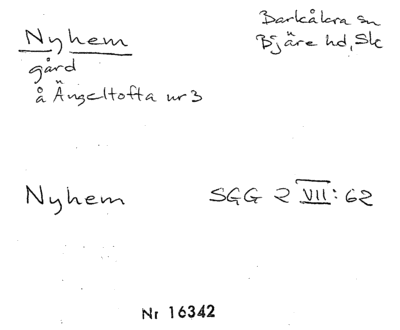 Nyhem
gård
å Ängeltofta nr 3
Barkåkra sn
Bjäre hd, Sk
Nyhem
SGG 2 VII: 62
Nr 16342